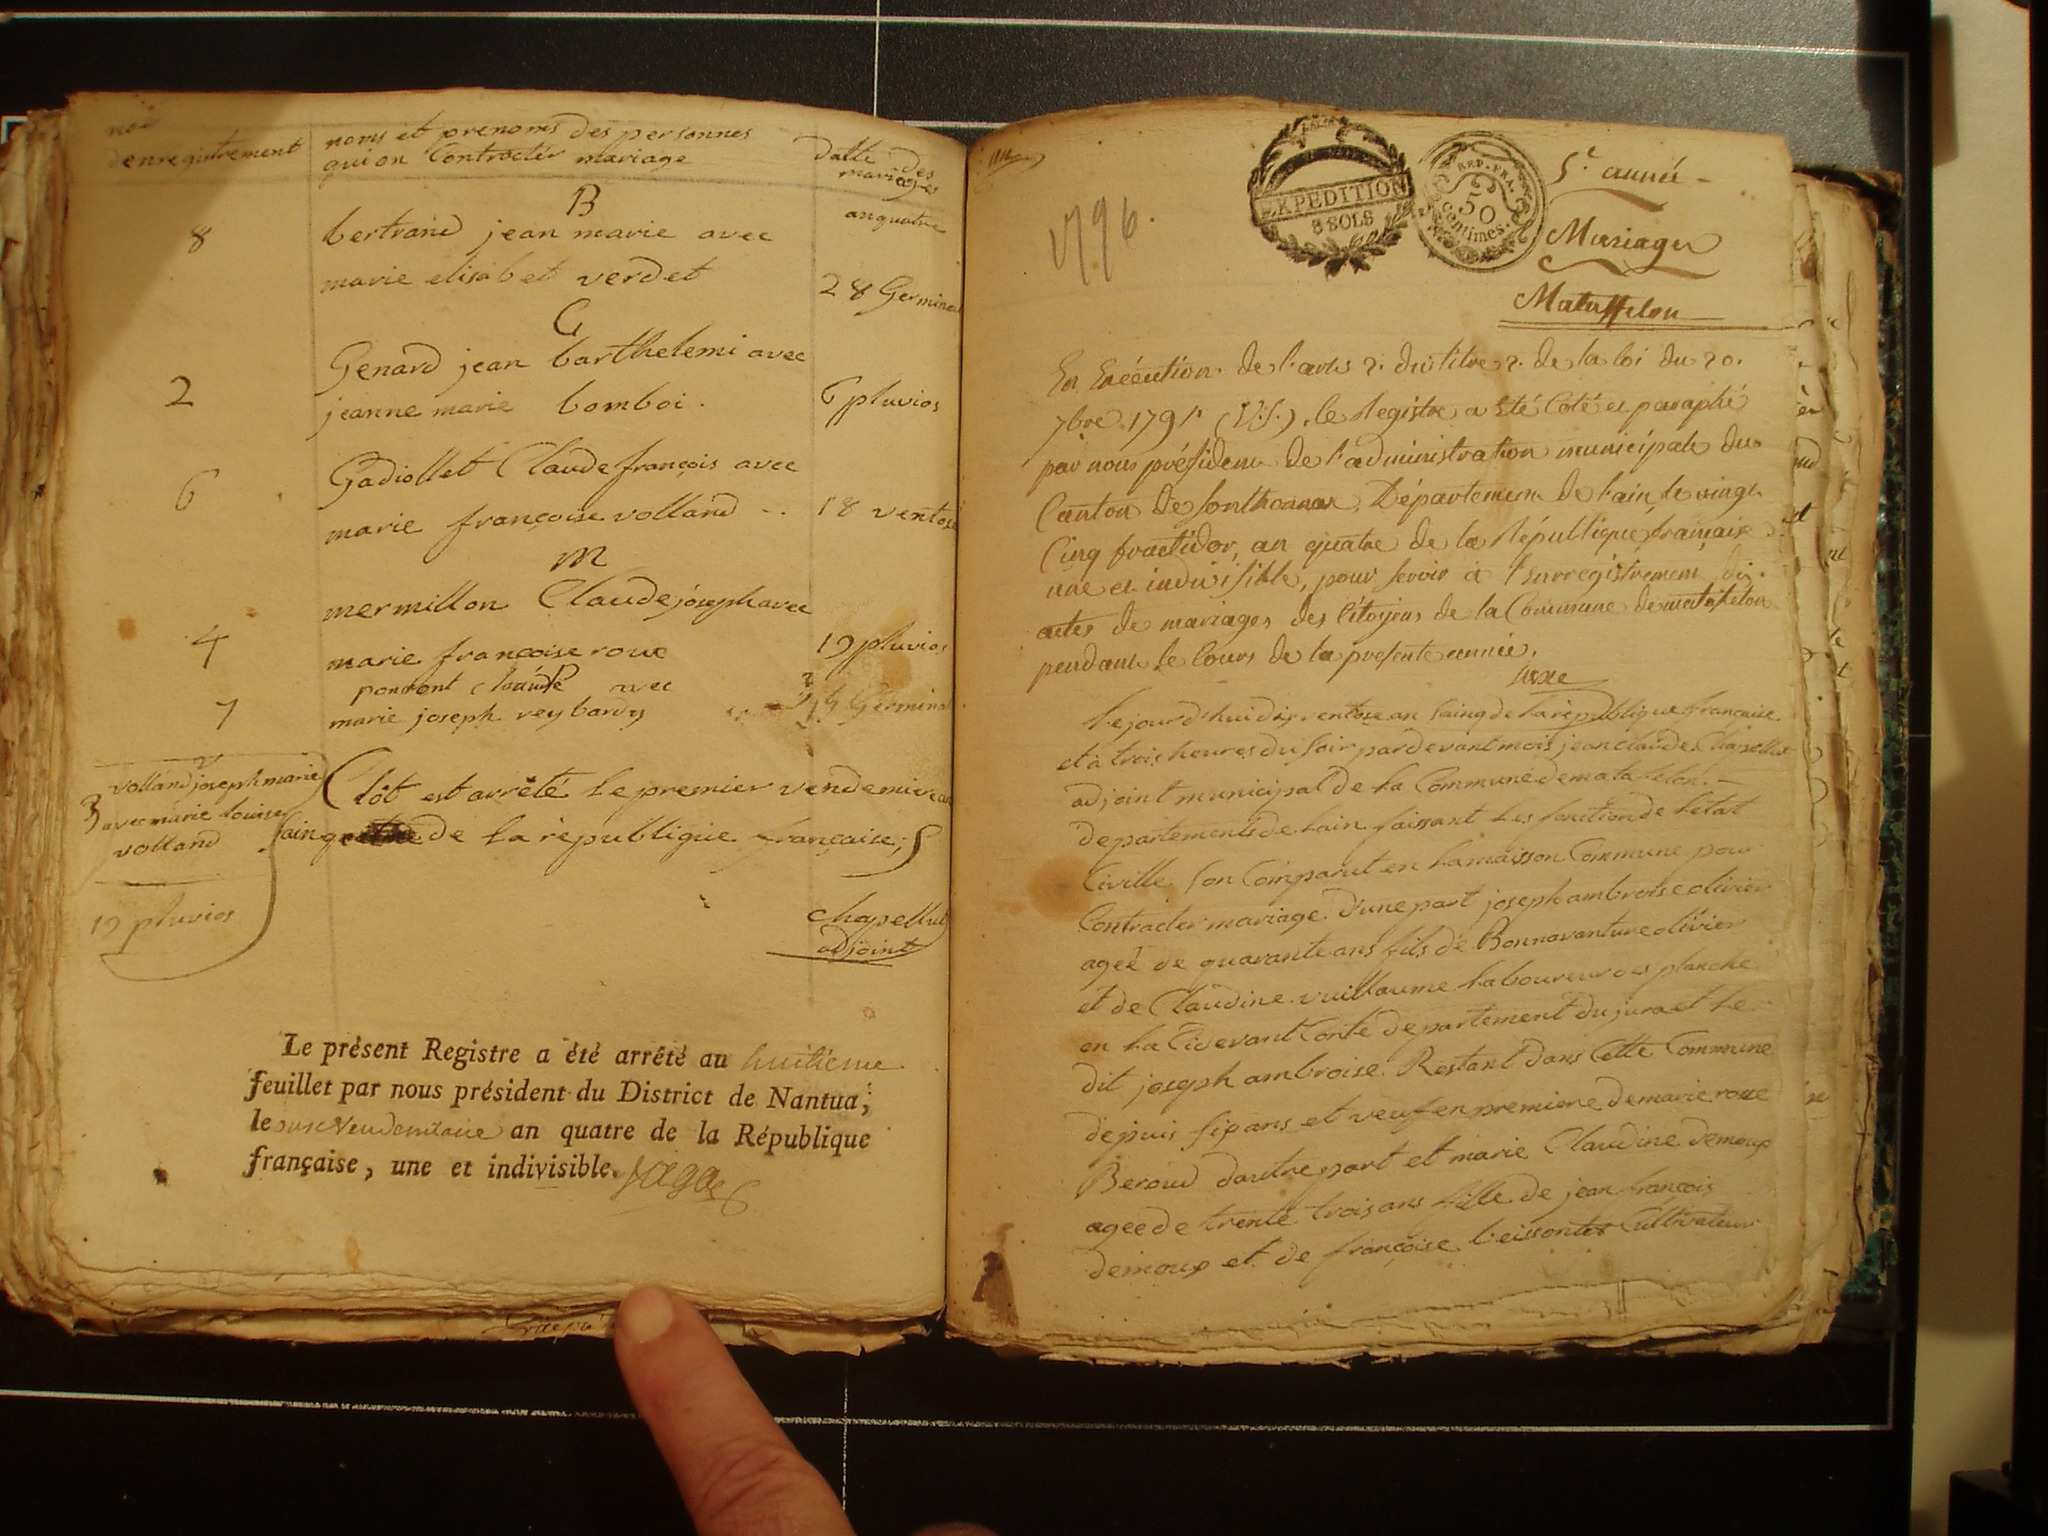 nos
denregistrement
noms et prenoms des personnes
qui on Contracter mariage
datte des
mariages
an quatre
B
8
bertrand jean marie avec
marie elisabet verdet
28 Germinal
G
Genard jean barthelemi avec
2
jeanne marie bomboi.
6 pluvios
6
Gadiollet Claude françois avec
marie françoise volland
18 ventose
M
mermillon Claude joseph avec
4
marie françoise roux
19 pluvios
P
ponront claude avec
7
marie joseph reybardy
Germinal
V
volland joseph marie
3 avec marie louise
volland
19 pluvios
Clôt est arrêté le premier vendemiere
de la république française;
chapellut
adjoint
Le présent Registre a été arrêté au huitieme
feuillet par nous président du District de Nantua,
le onze Vendemiaire an quatre de la République
française, une et indivisible.
1796.
EXPEDITION
3 SOLS
REP. FRA.
50
centimes.
5e année
Mariages
Mataffelon
En Exécution de l'art. 2. du titre 2. de la loi du 20.
7bre 1791 (V.S.), le Registre a été Coté et paraphé
par nous président de l'administration municipale du
Canton de Sonthonnax, Département de l'ain, le vingt
Cinq fructidor, an quatre de la République française
une et indivisible, pour servir à l'Enregistrement des
actes de mariages des Citoyens de la Commune de matafelon
pendant le Cours de la présente année.
Lejourd'hui dix ventose an Cainq de la république francaise
et a trois heures du soir pardevant mois jean claude Chapellut
adjoint municipal de la Commune de matafelon
departements de lain faissant les fonction de letat
Civille son Comparut en la maisson Commune pour
Contracter mariage. D'une part joseph ambroise olivier
ageé de quarante ans fils de Bonnavanture olivier
et de Claudine vuillaume laboureur des planche
en la Cidevant Conté departement du jura et le
dit joseph ambroise Restant dans Cette Commune
depuis six ans et veuf en premiere de marie roux
Beroud dautre part et marie Claudine demoux
ageé de trente trois ans fille de jean françois
demoux et de françoise beissontes Cultivateur